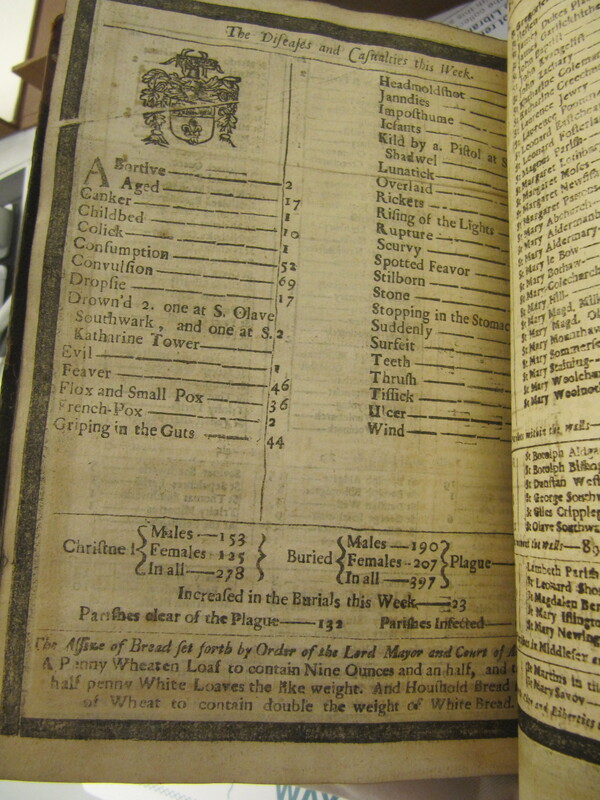 The Diseases and Casualties this Week.
Abortive 2
Aged 17
Canker 1
Childbed 10
Colick 1
Consumption 52
Convulsion 69
Dropsie 17
Drown'd 2. one at S. Olave
Southwark, and one at S. 2
Katharine Tower
Evil 1
Feaver 46
Flox and Small Pox 36
French-Pox 2
Griping in the Guts 44
Headmoldshot
Janndies
Imposthume
Icfants
Kild by a Pistol at S
Shadwel
Lunatick
Overlaid
Rickets
Rising of the Lights
Rupture
Scurvy
Spotted Feavor
Stilborn
Stone
Stopping in the Stomac
Suddenly
Surfeit
Teeth
Thrush
Tissick
Ulcer
Wind
Christned
Males 153
Females 125
In all 278
Buried
Males 190
Females 207
In all 397
Plague
Increased in the Burials this Week 23
Parishes clear of the Plague 132 Parishes Infected
The Assize of Bread set forth by Order of the Lord Mayor and Court of A
A Penny Wheaten Loaf to contain Nine Ounces and an half, and t
half penny White Loaves the like weight. And Houshold Bread
of Wheat to contain double the weight of White Bread.
St John Zachary
St Katharine Coleman
St Katharine Creechu
St Lawrence Jewry
St Magnus Parish
St Margaret Lothbury
St Margaret Moses
St Margaret Newfish
St Margaret Pattons
St Mary Abchurch
St Mary Aldermanb
St Mary Aldermary
St Mary le Bow
St Mary Bothaw
St Mary Colechurch
St Mary Hill
St Mary Magd. Milk
St Mary Magd. Ol
St Mary Mounthaw
St Mary Sommerse
St Mary Staining
St Mary Woolchur
St Mary Woolnot
within the walls
St Botolph Aldga
St Botolph Bishop
St Dunstan West
St George Southw
St Giles Crippleg
St Olave Southwa
Lambeth Parish
St Leonard Shor
St Magdalen Ber
St Mary Islington
St Mary Newing
St Martins in th
St Mary Savoy